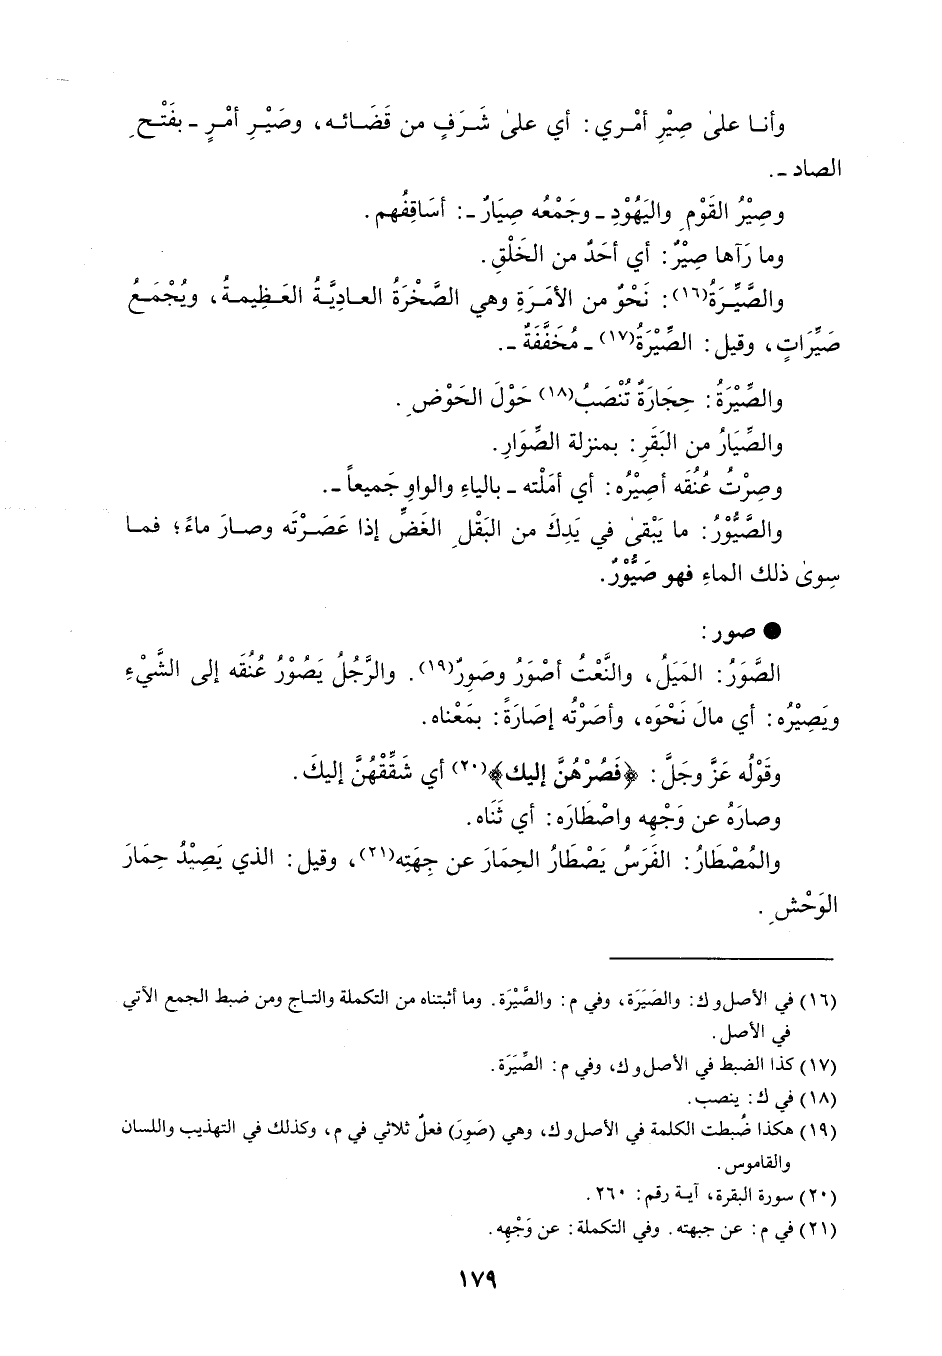 وأنـا علىٰ صِيْرِ أمْـري: أي علىٰ شَـرَفٍ من قَضَـائـه، وصَيْـرِ أمْـرٍ ـ بفَتْـحِ
الصاد ـ.
وصِيْرُ القَوْمِ واليَهُوْدِ ـ وجَمْعُه صِيَارٌ ـ: أسَاقِفُهم.
وما رَآها صِيْرٌ: أي أحَدٌ من الخَلْقِ.
والصَّيِّـرَةُ(١٦): نَحْوٌ من الأمَـرَةِ وهي الصَّخْرَةُ العـاديَّـةُ العَـظِيمـةُ، ويُجْمَـعُ
صَيِّرَاتٍ، وقيل: الصِّيْرَةُ(١٧) ـ مُخَفَّفَةٌ ـ.
والصِّيْرَةُ: حِجَارَةٌ تُنْصَبُ(١٨) حَوْلَ الحَوْضِ.
والصِّيَارُ من البَقَرِ: بمنزلة الصِّوَارِ.
وصِرْتُ عُنُقَه أصِيْرُه: أي أمَلْته ـ بالياءِ والواوِ جَميعاً ـ.
والصَّيُّوْرُ: ما يَبْقىٰ في يَدِكَ من البَقْلِ الغَضِّ إذا عَصَـرْتَه وصـارَ ماءً؛ فمـا
سِوىٰ ذلك الماءِ فهو صَيُّوْرٌ.
● صور:
الصَّوَرُ: المَيَلُ، والنَّعْتُ أصْوَرُ وصَوِرٌ(١٩). والرَّجُلُ يَصُوْرُ عُنُقَه إلى الشَّيْءِ
ويَصِيْرُه: أي مالَ نَحْوَه، وأصَرْتُه إصَارَةً: بمَعْناه.
وقَوْلُه عَزَّ وجَلَّ: ﴿فَصُرْهُنَّ إليك﴾(٢٠) أي شَقِّقْهُنَّ إليكَ.
وصارَهُ عن وَجْهِه واصْطَارَه: أي ثَنَاه.
والمُصْطَارُ: الفَرَسُ يَصْطَارُ الحِمَارَ عن جِهَتِه(٢١)، وقيل: الذي يَصِيْدُ حِمَارَ
الوَحْشِ.
(١٦) في الأصل و ك: والصَيَرَة، وفي م: والصَّيْرَة. وما أثبتناه من التكملة والتـاج ومن ضبط الجمع الآتي
في الأصل.
(١٧) كذا الضبط في الأصل و ك، وفي م: الصِّيَرَة.
(١٨) في ك: ينصب.
(١٩) هكذا ضُبطت الكلمة في الأصل و ك، وهي (صَوِرَ) فعلٌ ثلاثي في م، وكذلك في التهذيب واللسان
والقاموس.
(٢٠) سورة البقرة، آيـة رقم: ٢٦٠.
(٢١) في م: عن جبهته. وفي التكملة: عن وَجْهِه.
١٧٩